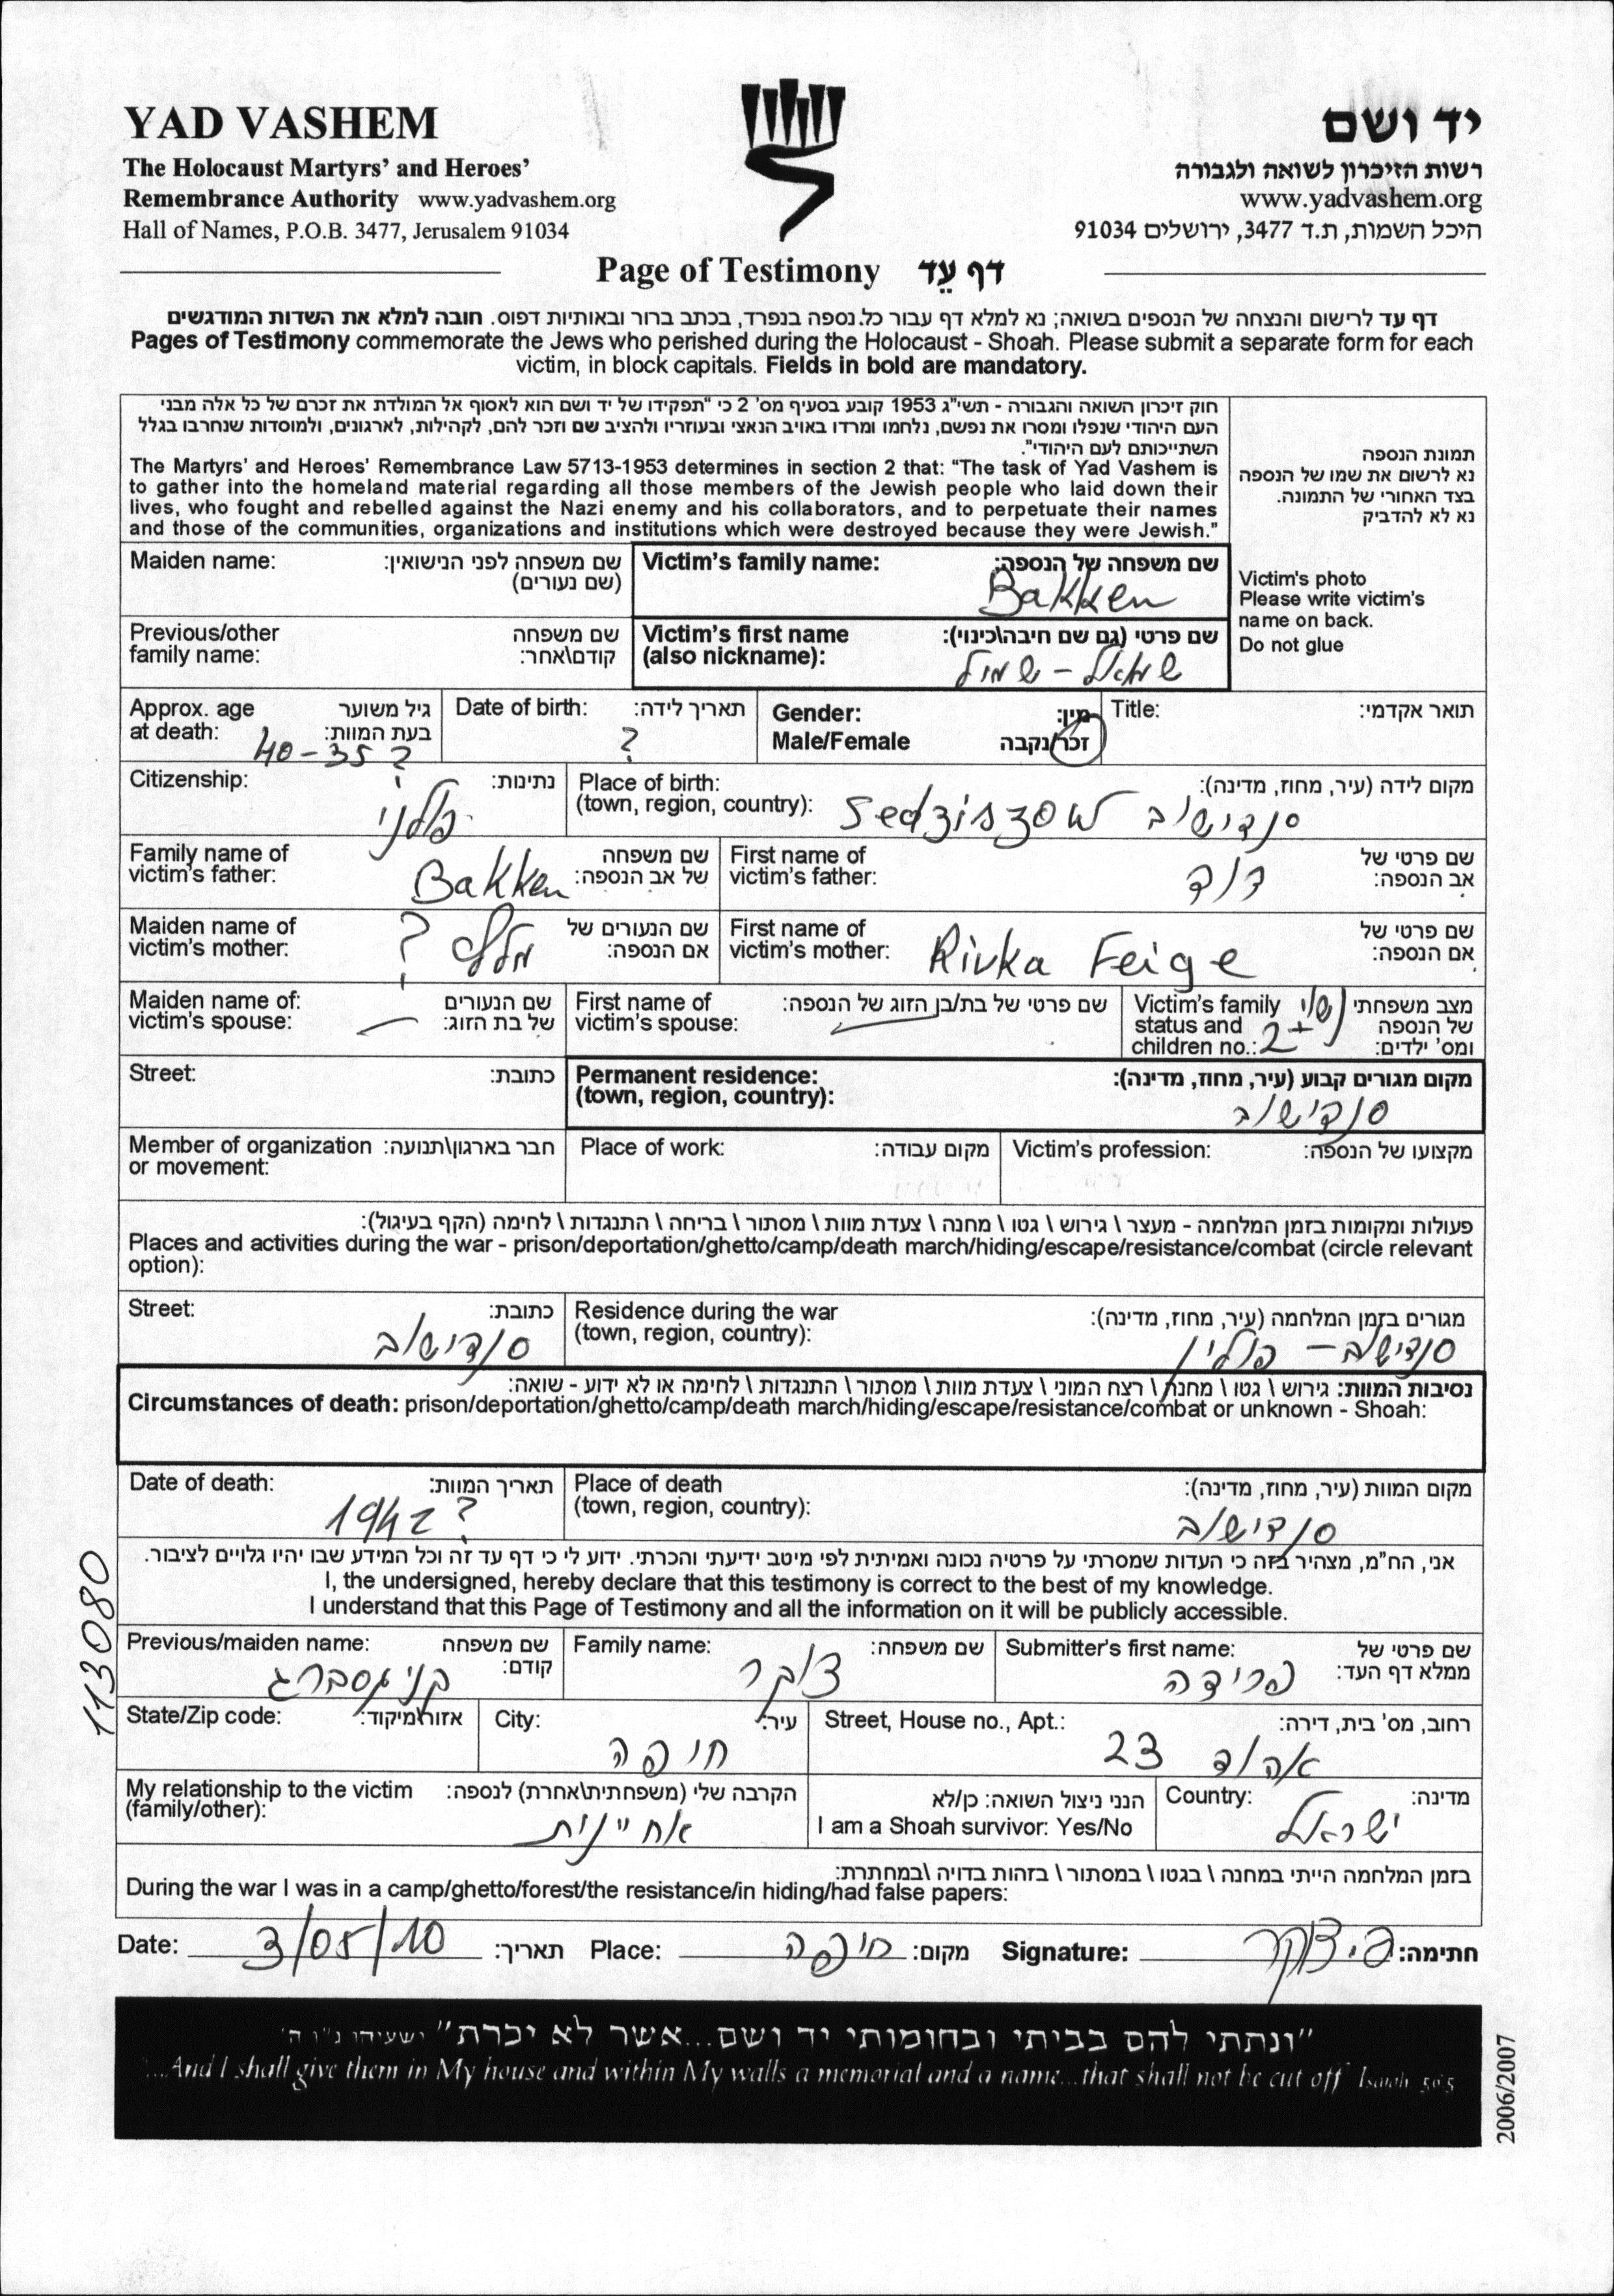 YAD VASHEM
The Holocaust Martyrs' and Heroes'
Remembrance Authority www.yadvashem.org
Hall of Names, P.O.B. 3477, Jerusalem 91034
יד ושם
רשות הזיכרון לשואה ולגבורה
www.yadvashem.org
היכל השמות, ת.ד 3477, ירושלים 91034
Page of Testimony דף עֵד
דף עד לרישום והנצחה של הנספים בשואה; נא למלא דף עבור כל נספה בנפרד, בכתב ברור ובאותיות דפוס. חובה למלא את השדות המודגשים
Pages of Testimony commemorate the Jews who perished during the Holocaust - Shoah. Please submit a separate form for each
victim, in block capitals. Fields in bold are mandatory.
חוק זיכרון השואה והגבורה - תשי"ג 1953 קובע בסעיף מס' 2 כי "תפקידו של יד ושם הוא לאסוף אל המולדת את זכרם של כל אלה מבני
העם היהודי שנפלו ומסרו את נפשם, נלחמו ומרדו באויב הנאצי ובעוזריו ולהציב שם וזכר להם, לקהילות, לארגונים, ולמוסדות שנחרבו בגלל
השתייכותם לעם היהודי".
The Martyrs' and Heroes' Remembrance Law 5713-1953 determines in section 2 that: "The task of Yad Vashem is
to gather into the homeland material regarding all those members of the Jewish people who laid down their
lives, who fought and rebelled against the Nazi enemy and his collaborators, and to perpetuate their names
and those of the communities, organizations and institutions which were destroyed because they were Jewish."
תמונת הנספה
נא לרשום את שמו של הנספה
בצד האחורי של התמונה.
נא לא להדביק
Victim's photo
Please write victim's
name on back.
Do not glue
Maiden name: שם משפחה לפני הנישואין:
(שם נעורים)
Victim's family name: שם משפחה של הנספה:
Bakken
Previous/other שם משפחה
family name: קודם\אחר:
Victim's first name שם פרטי (גם שם חיבה\כינוי):
(also nickname): שמואל - שמיל
Approx. age גיל משוער
at death: בעת המוות:
40-35 ?
Date of birth: תאריך לידה:
?
Gender: מין:
Male/Female זכר/נקבה
Title: תואר אקדמי:
Citizenship: נתינות:
פולני
Place of birth: מקום לידה (עיר, מחוז, מדינה):
(town, region, country): Sedziszow סנדישוב
Family name of שם משפחה
victim's father: של אב הנספה:
Bakken
First name of שם פרטי של
victim's father: אב הנספה:
דוד
Maiden name of שם הנעורים של
victim's mother: אם הנספה:
?
First name of שם פרטי של
victim's mother: אם הנספה:
Rivka Feige
Maiden name of: שם הנעורים
victim's spouse: של בת הזוג:
First name of שם פרטי של בת/בן הזוג של הנספה:
victim's spouse:
Victim's family מצב משפחתי
status and של הנספה
children no.: ומס' ילדים:
נשוי + 2
Street: כתובת:
Permanent residence: מקום מגורים קבוע (עיר, מחוז, מדינה):
(town, region, country):
סנדישוב
Member of organization חבר בארגון\תנועה:
or movement:
Place of work: מקום עבודה:
Victim's profession: מקצועו של הנספה:
פעולות ומקומות בזמן המלחמה - מעצר \ גירוש \ גטו \ מחנה \ צעדת מוות \ מסתור \ בריחה \ התנגדות \ לחימה (הקף בעיגול):
Places and activities during the war - prison/deportation/ghetto/camp/death march/hiding/escape/resistance/combat (circle relevant
option):
Street: כתובת:
סנדישוב
Residence during the war מגורים בזמן המלחמה (עיר, מחוז, מדינה):
(town, region, country):
סנדישוב - פולין
נסיבות המוות: גירוש \ גטו \ מחנה \ רצח המוני \ צעדת מוות \ מסתור \ התנגדות \ לחימה או לא ידוע - שואה:
Circumstances of death: prison/deportation/ghetto/camp/death march/hiding/escape/resistance/combat or unknown - Shoah:
Date of death: תאריך המוות:
1942 ?
Place of death מקום המוות (עיר, מחוז, מדינה):
(town, region, country):
סנדישוב
אני, הח"מ, מצהיר בזה כי העדות שמסרתי על פרטיה נכונה ואמיתית לפי מיטב ידיעתי והכרתי. ידוע לי כי דף עד זה וכל המידע שבו יהיו גלויים לציבור.
I, the undersigned, hereby declare that this testimony is correct to the best of my knowledge.
I understand that this Page of Testimony and all the information on it will be publicly accessible.
Previous/maiden name: שם משפחה
קודם:
קניגסברג
Family name: שם משפחה:
צוקר
Submitter's first name: שם פרטי של
ממלא דף העד:
פרידה
State/Zip code: אזור\מיקוד:
City: עיר:
חיפה
Street, House no., Apt.: רחוב, מס' בית, דירה:
אהוד 23
My relationship to the victim הקרבה שלי (משפחתית\אחרת) לנספה:
(family/other):
אחיינית
הנני ניצול השואה: כן/לא
I am a Shoah survivor: Yes/No
Country: מדינה:
ישראל
בזמן המלחמה הייתי במחנה \ בגטו \ במסתור \ בזהות בדויה \ במחתרת:
During the war I was in a camp/ghetto/forest/the resistance/in hiding/had false papers:
Date: 3/05/10 תאריך: Place: חיפה מקום: Signature: פ. צוקר חתימה:
"ונתתי להם בביתי ובחומותי יד ושם...אשר לא יכרת" ישעיהו נ"ו ה'
...And I shall give them in My house and within My walls a memorial and a name...that shall not be cut off Isaiah 56:5
113080
2006/2007